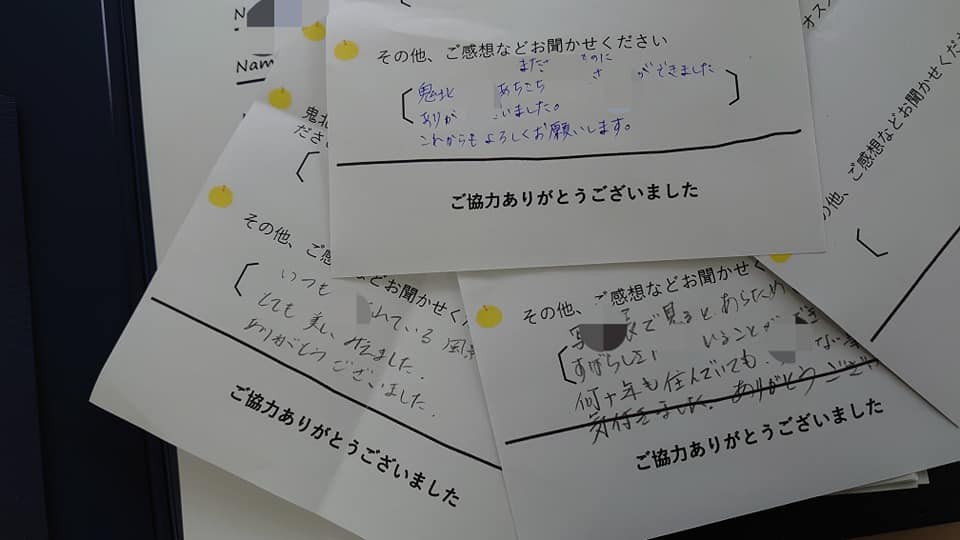 N
Nam
その他、ご感想などお聞かせください
まだ
鬼北 あちこち ができました
ありが いました。
これからもよろしくお願いします。
ご協力ありがとうございました
鬼北
ださ
その他、ご感
などお聞かせく
いつも れている 風景
とても 美しい
ありがとうございました。
ご協力ありがとうございました
その他、ご感想などお聞かせく
で見ると あらため
すばらしさ いることが
何十年も住んでいても、 ない
ありがとうござ
ご協力ありがとうございました
オス
の他、ご感想などお聞かせくだ